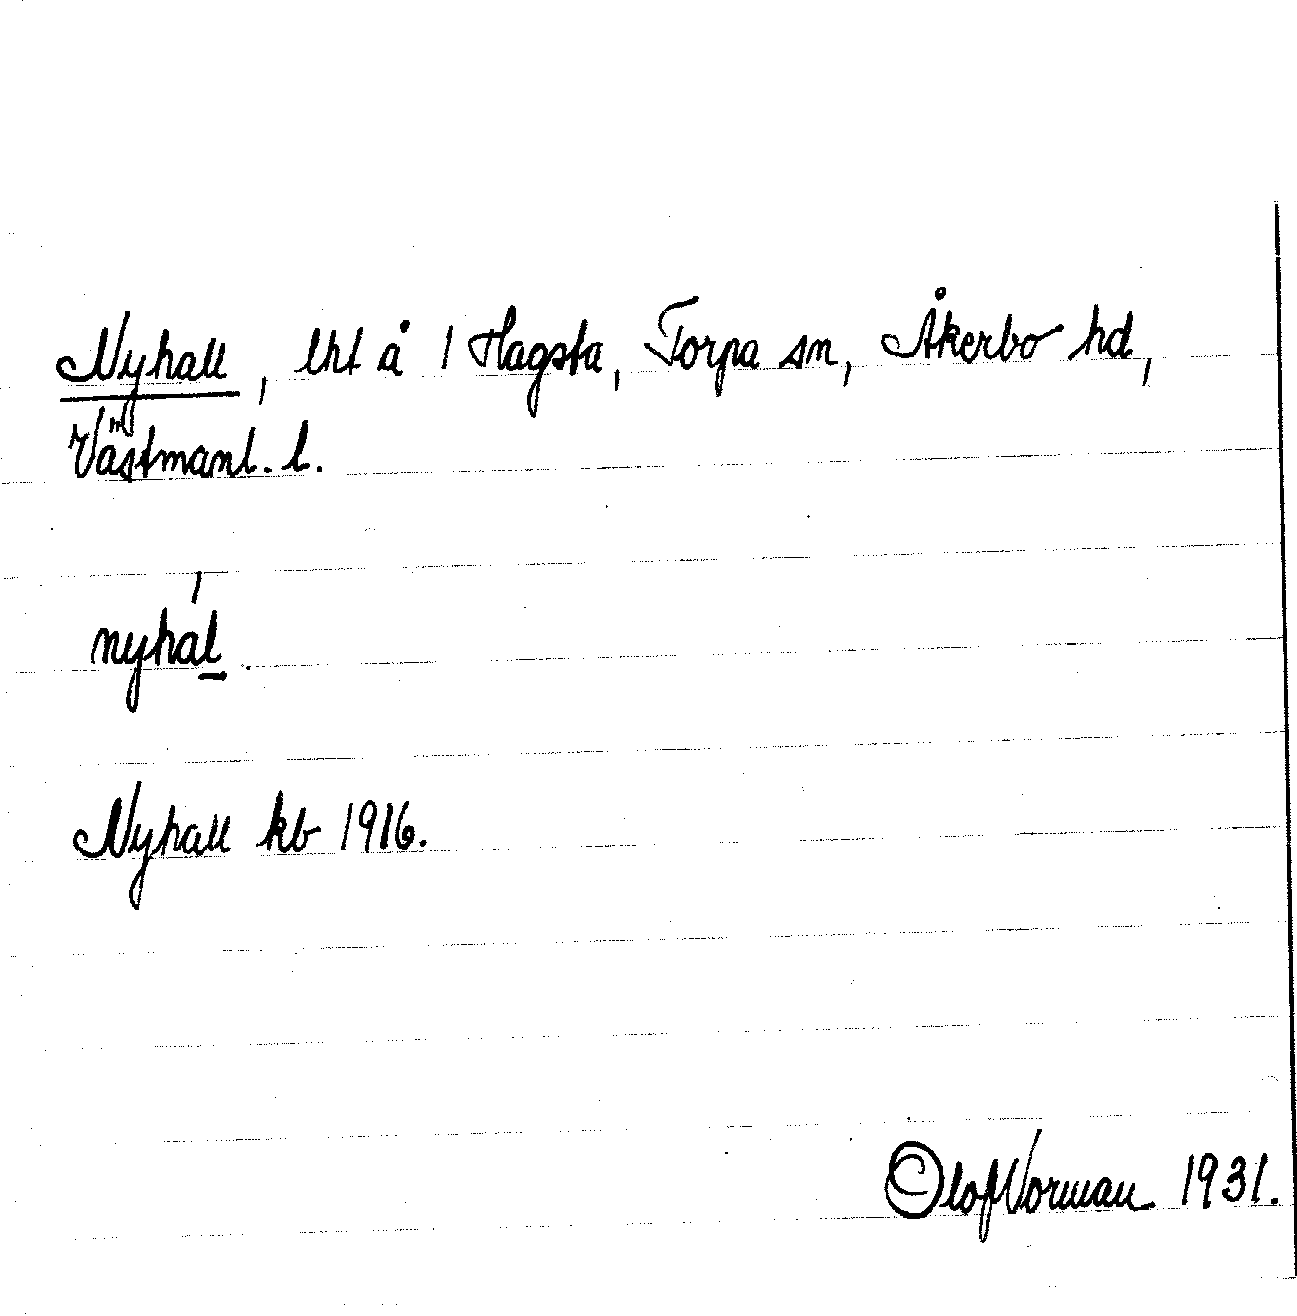 Nyhall, lht å 1 Hagsta, Torpa sn, Åkerbo hd,
Västmanl. l.
nyhál.
Nyhall kb 1916.
Olof Norman 1931.